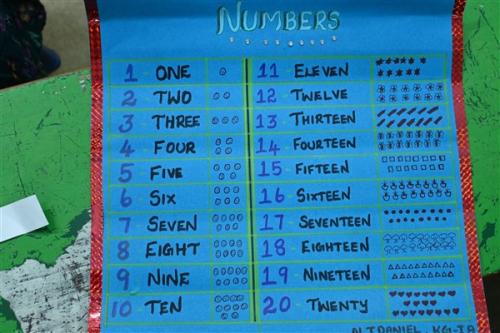 NUMBERS
1 ONE
2 TWO
3 THREE
4 FOUR
5 FIVE
6 SIX
7 SEVEN
8 EIGHT
9 NINE
10 TEN
11 ELEVEN
12 TWELVE
13 THIRTEEN
14 FOURTEEN
15 FIFTEEN
16 SIXTEEN
17 SEVENTEEN
18 EIGHTEEN
19 NINETEEN
20 TWENTY